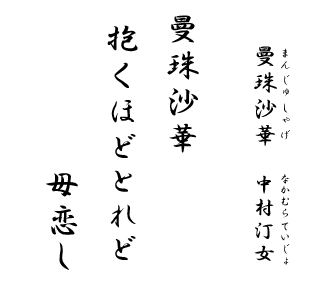 曼珠沙華 中村汀女
まんじゅしゃげ なかむらていじょ
曼珠沙華
抱くほどとれど
母恋し